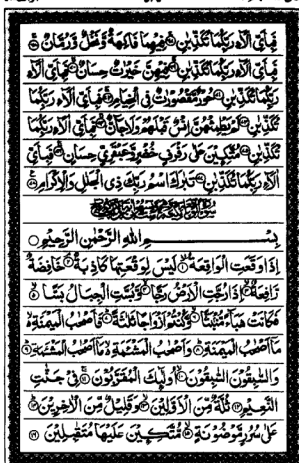 فَبِأَيِّ آلَاءِ رَبِّكُمَا تُكَذِّبَانِ فِيهِمَا فَاكِهَةٌ وَنَخْلٌ وَرُمَّانٌ
فَبِأَيِّ آلَاءِ رَبِّكُمَا تُكَذِّبَانِ فِيهِنَّ خَيْرَاتٌ حِسَانٌ فَبِأَيِّ آلَاءِ
رَبِّكُمَا تُكَذِّبَانِ حُورٌ مَقْصُورَاتٌ فِي الْخِيَامِ فَبِأَيِّ آلَاءِ رَبِّكُمَا
تُكَذِّبَانِ لَمْ يَطْمِثْهُنَّ إِنْسٌ قَبْلَهُمْ وَلَا جَانٌّ فَبِأَيِّ آلَاءِ رَبِّكُمَا
تُكَذِّبَانِ مُتَّكِئِينَ عَلَى رَفْرَفٍ خُضْرٍ وَعَبْقَرِيٍّ حِسَانٍ فَبِأَيِّ
آلَاءِ رَبِّكُمَا تُكَذِّبَانِ تَبَارَكَ اسْمُ رَبِّكَ ذِي الْجَلَالِ وَالْإِكْرَامِ
بِسْمِ اللَّهِ الرَّحْمَنِ الرَّحِيمِ
إِذَا وَقَعَتِ الْوَاقِعَةُ لَيْسَ لِوَقْعَتِهَا كَاذِبَةٌ خَافِضَةٌ
رَافِعَةٌ إِذَا رُجَّتِ الْأَرْضُ رَجًّا وَبُسَّتِ الْجِبَالُ بَسًّا
فَكَانَتْ هَبَاءً مُنْبَثًّا وَكُنْتُمْ أَزْوَاجًا ثَلَاثَةً فَأَصْحَابُ الْمَيْمَنَةِ
مَا أَصْحَابُ الْمَيْمَنَةِ وَأَصْحَابُ الْمَشْأَمَةِ مَا أَصْحَابُ الْمَشْأَمَةِ
وَالسَّابِقُونَ السَّابِقُونَ أُولَئِكَ الْمُقَرَّبُونَ فِي جَنَّاتِ
النَّعِيمِ ثُلَّةٌ مِنَ الْأَوَّلِينَ وَقَلِيلٌ مِنَ الْآخِرِينَ
عَلَى سُرُرٍ مَوْضُونَةٍ مُتَّكِئِينَ عَلَيْهَا مُتَقَابِلِينَ